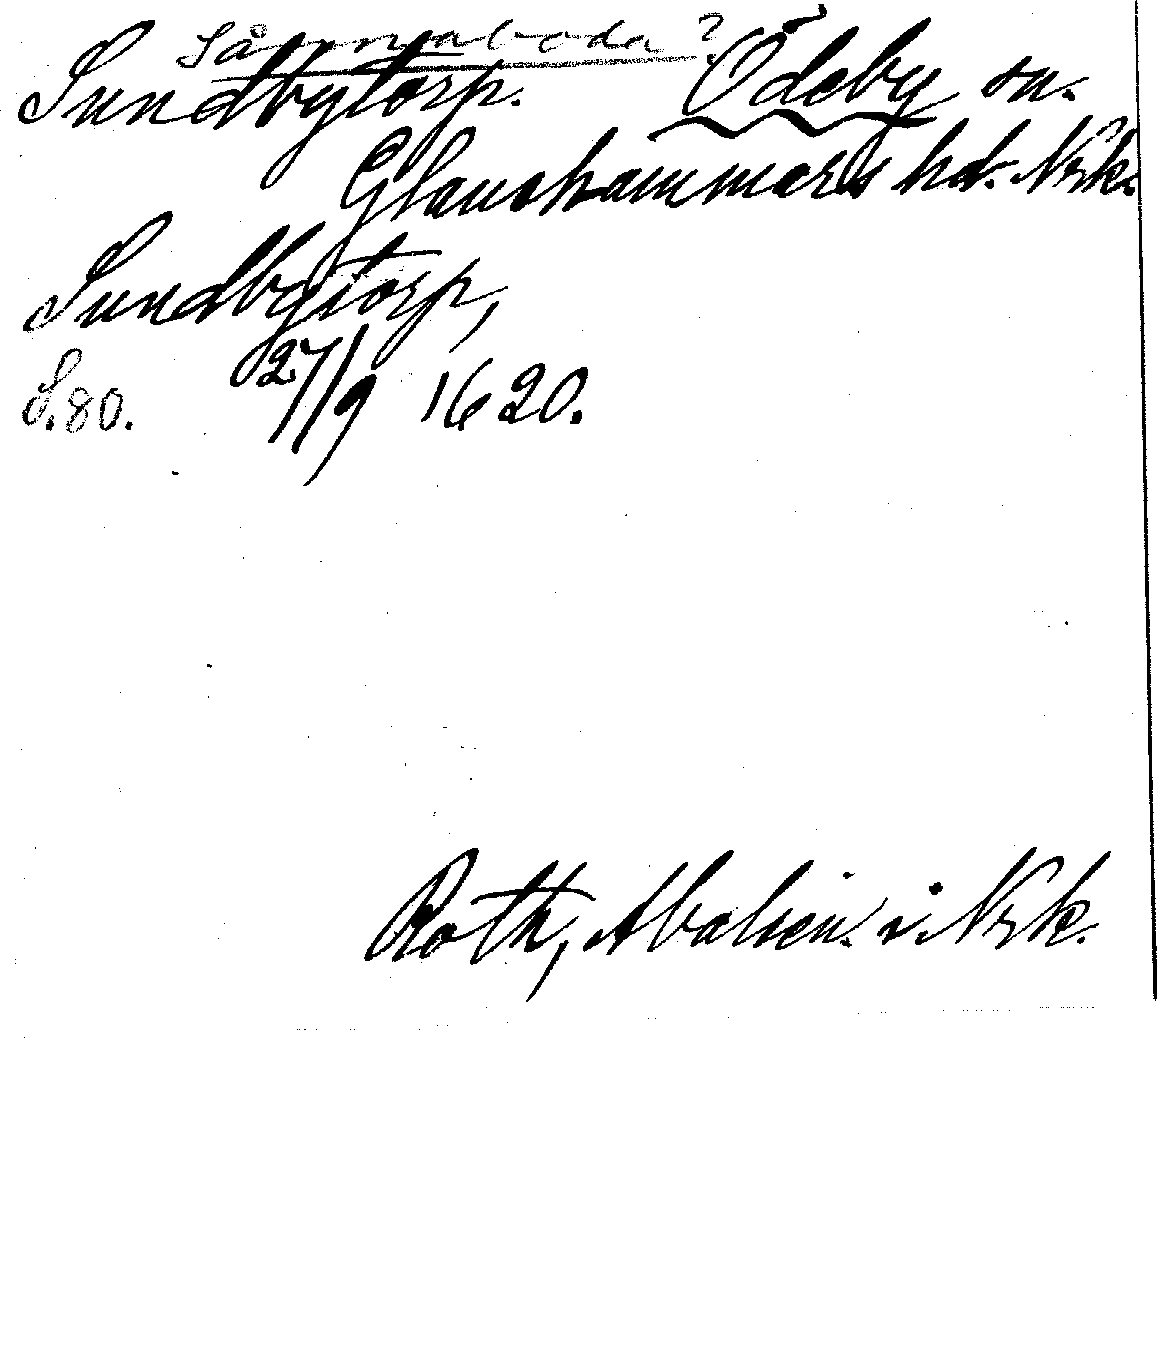 Sånnaboda?
Sundbytorp. Ödeby sn.
Glanshammars hd. Nrk.
Sundbytorp,
S.80. 27/9 1620.
Roth, Abalien. i. Nrk.